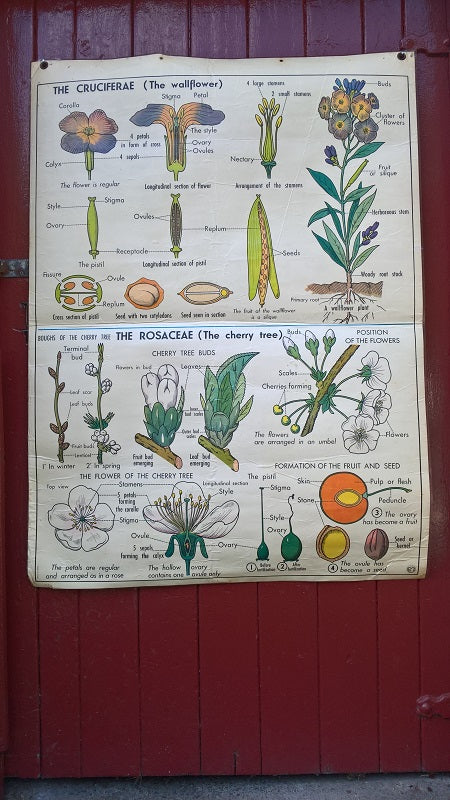 THE CRUCIFERAE (The wallflower)
Corolla
Stigma
Petal
4 petals
in form of cross
4 sepals
The style
Ovary
Ovules
Calyx
The flower is regular
Longitudinal section of flower
4 large stamens
2 small stamens
Nectary
Arrangement of the stamens
Buds
Cluster of
flowers
Fruit
or silique
Herbaceous stem
Woody root stock
Primary root
A wallflower plant
Style
Stigma
Ovary
Ovules
Replum
Receptacle
The pistil
Longitudinal section of pistil
Seeds
The fruit of the wallflower
is a silique
Fissure
Ovule
Replum
Cross section of pistil
Seed with two cotyledons
Seed seen in section
BOUGHS OF THE CHERRY TREE
THE ROSACEAE (The cherry tree)
Terminal
bud
Leaf scar
Leaf buds
Fruit buds
Lenticel
1° In winter
2° In spring
CHERRY TREE BUDS
Flowers in bud
Leaves
Inner bud
scales
Outer bud
scales
Fruit bud
emerging
Leaf bud
emerging
Buds
POSITION
OF THE FLOWERS
Scales
Cherries forming
The flowers
are arranged in an umbel
Flowers
THE FLOWER OF THE CHERRY TREE
Top view
Stamens
5 petals
forming
the corolla
Stigma
Longitudinal section
Style
Ovule
5 sepals
forming the calyx
Ovary
The petals are regular
and arranged as in a rose
The hollow ovary
contains one ovule only
FORMATION OF THE FRUIT AND SEED
The pistil
Stigma
Style
Ovary
1 Before
fertilization
2 After
fertilization
Skin
Pulp or flesh
Stone
Peduncle
3 The ovary
has become a fruit
Seed or
kernel
4 The ovule has
become a seed